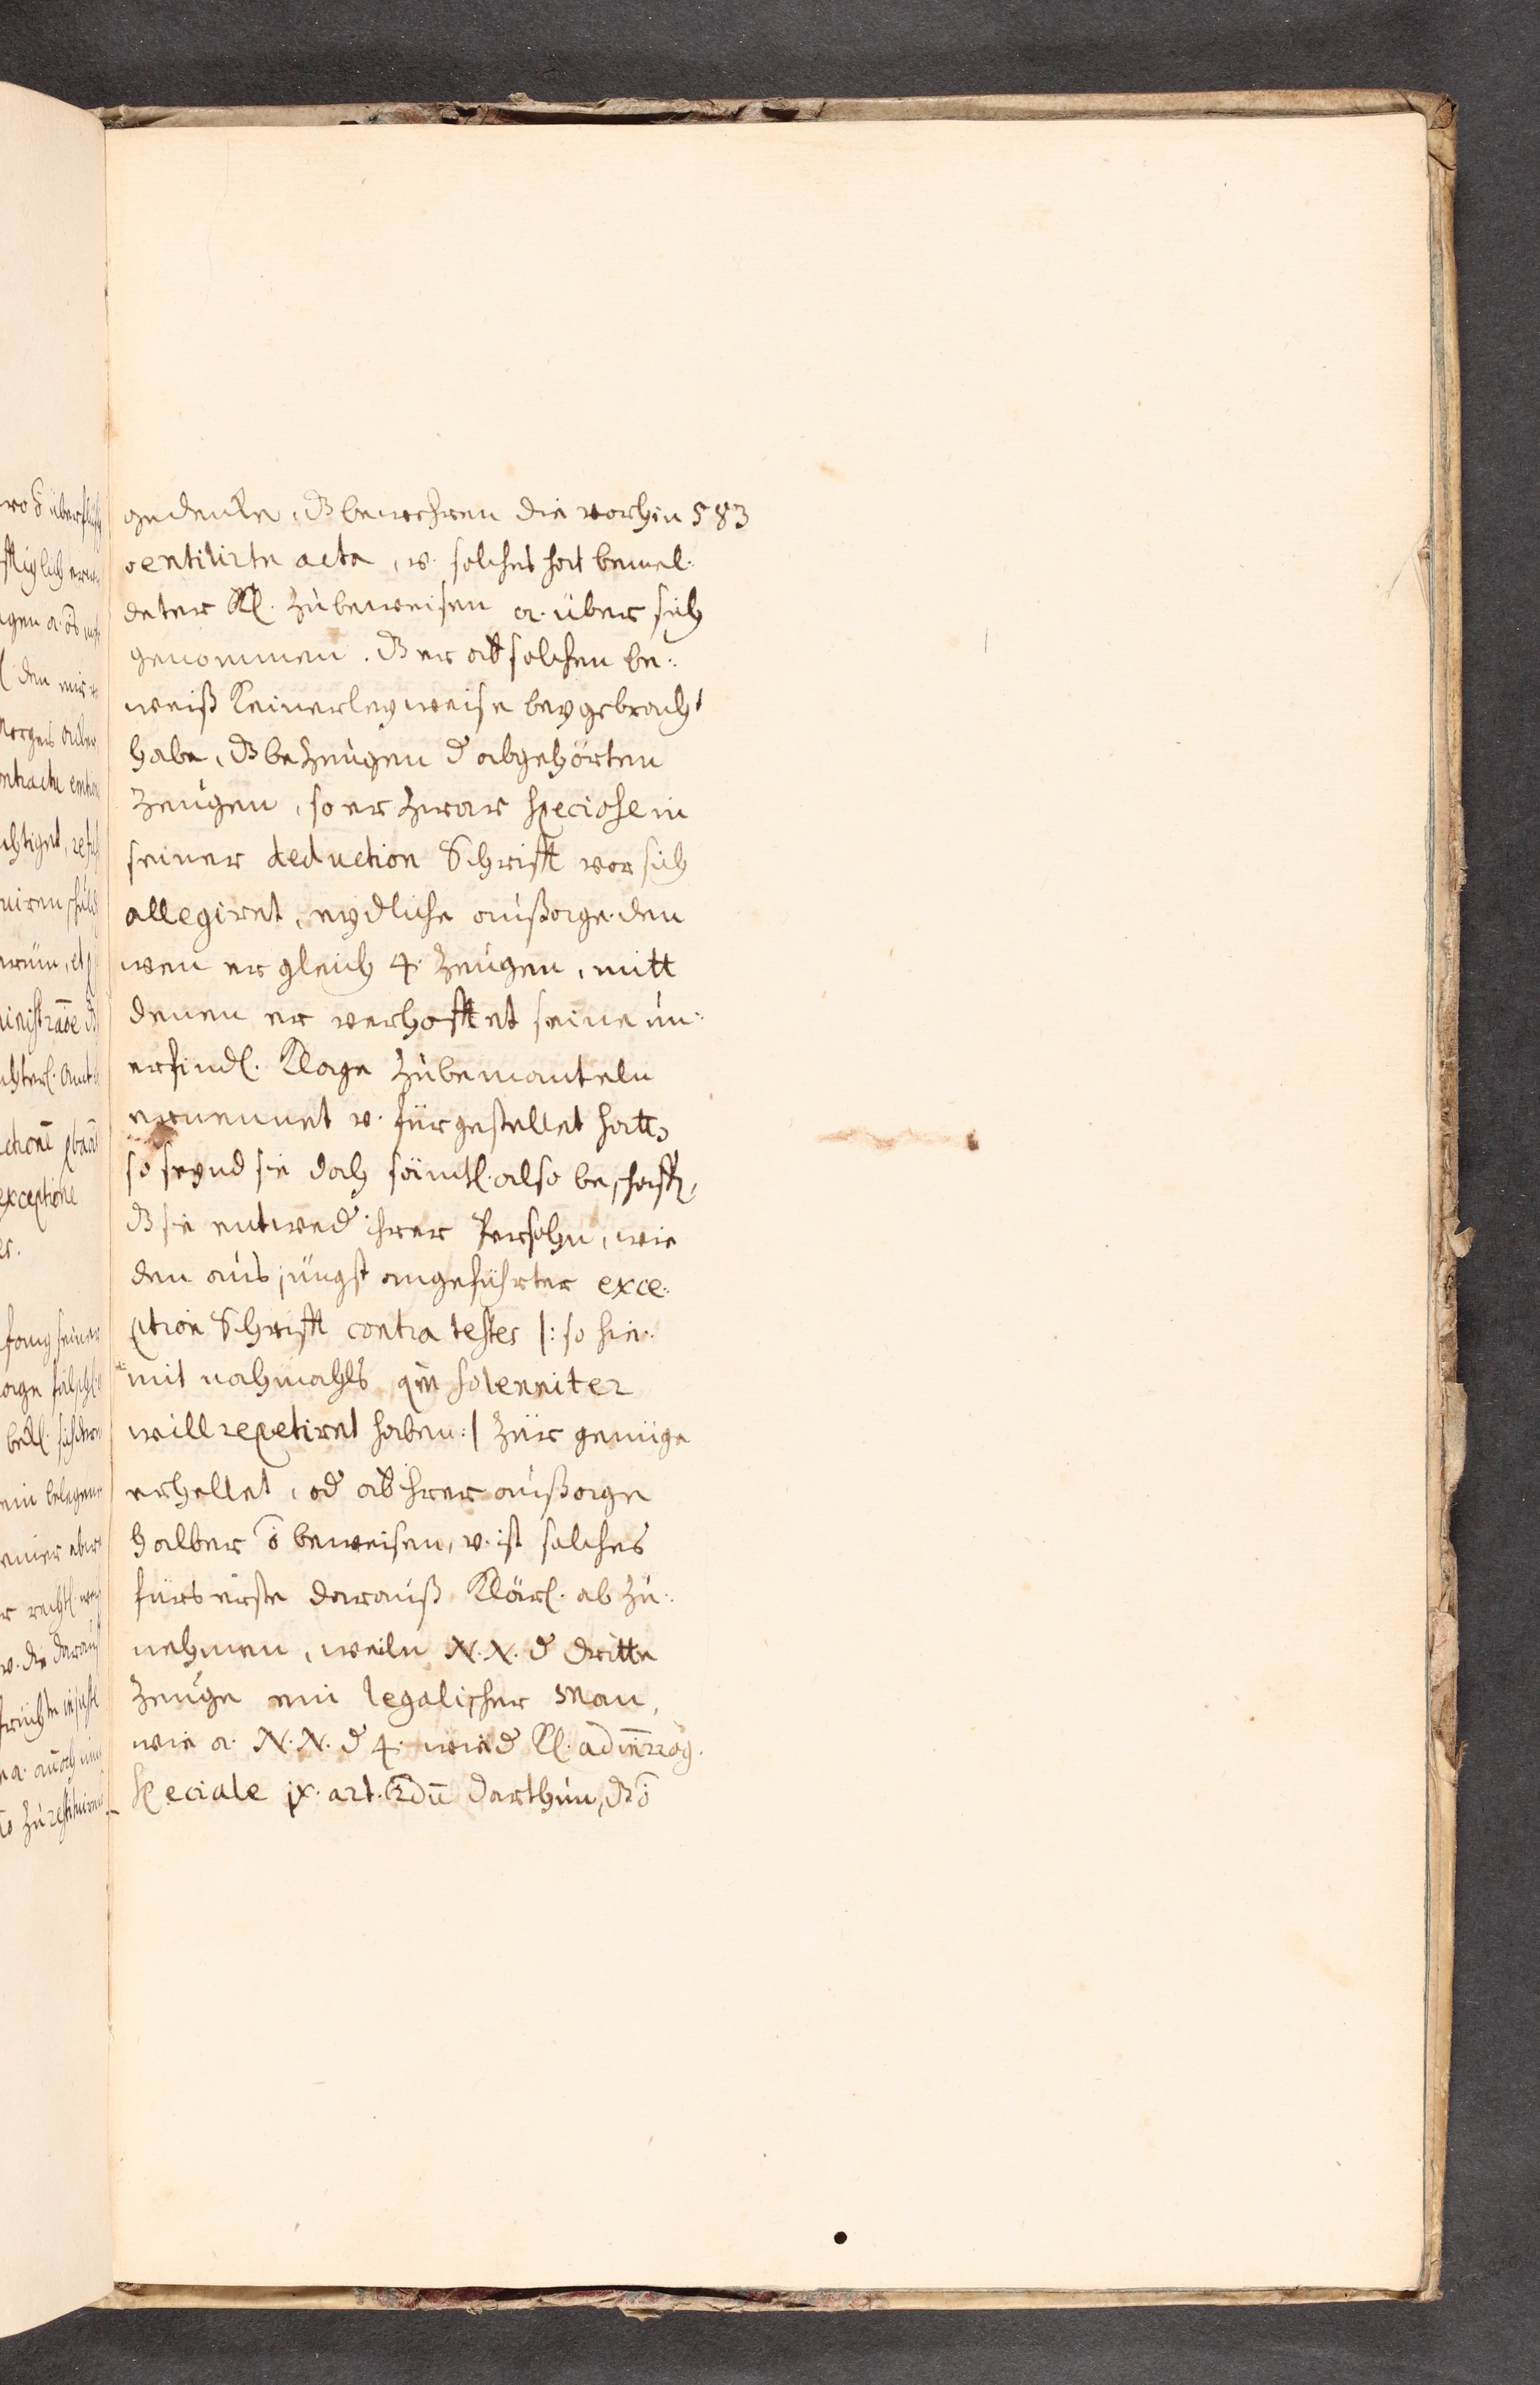 gedencke, dz bewehren die vorhin 583
ventilirte acta, v. solches hat bemel-
deter Kl. zu beweisen a. über sich
genommen. dz er ab solchen be:
weiß keinerleyweise beygebracht
habe, dz bezeugen d abgehörten
Zeugen, so er zwar speciose in
seiner deduction Schrifft vor sich
allegiret, eydliche außage. den
wen er gleich 4. Zeugen, mitt
denen er verhofftet seine un:
erfindl. Klage zubemanteln
ernennet v. fürgestellet hatt,
so seynd sie doch sämtl. also beschaff,
dz sie entwed ihrer Persohn, wie
den aus jüngst angeführter exce:
ption Schrifft contra testes |: so hie:
mit nachmahls solenniter
will repetiret haben :| zur genüge
erhellet, od ab ihrer außage
halber ō beweisen, v. ist solches
fürs erste darauß klärl. ab zu:
nehmen, weiln N. N. d dritte
Zeuge ein legalischer Man,
wie a. N. N. d 4. wied Kl. ad
speciale ix. art. darthun, dz ō
wo ō überflüß
ntracte
nistraōe dz
exceptione
fang seiner
ein belegene